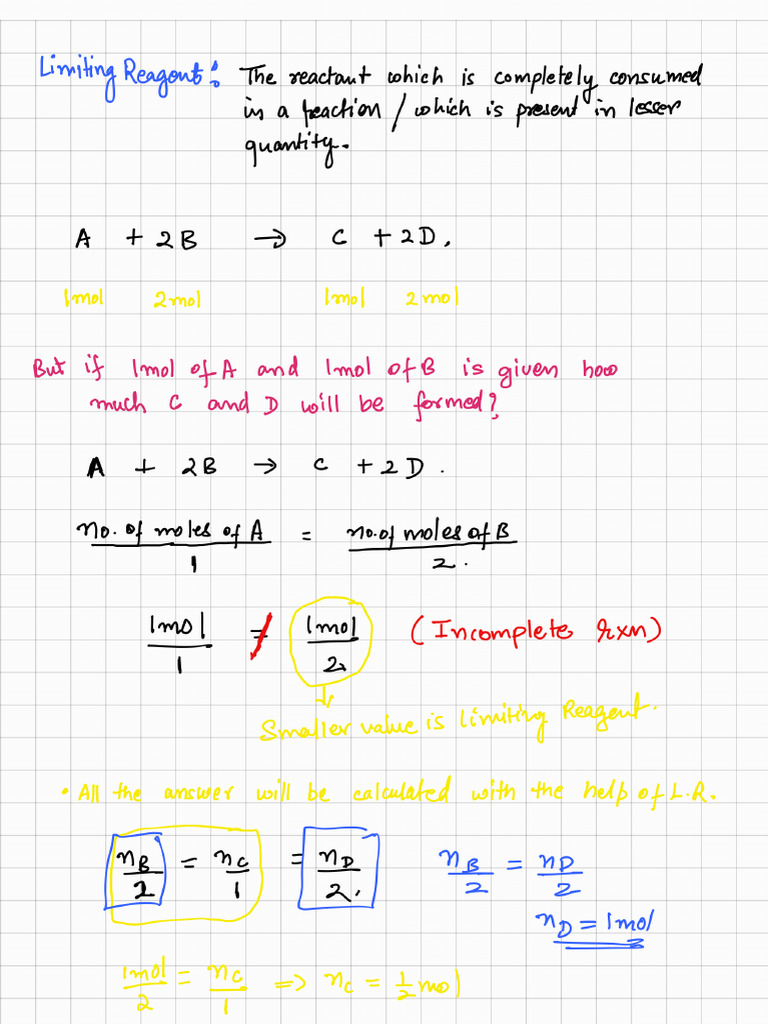 Limiting Reagent: The reactant which is completely consumed
in a reaction / which is present in lesser
quantity.
A + 2B → C + 2D.
1mol 2mol 1mol 2mol
But if 1mol of A and 1mol of B is given how
much C and D will be formed?
A + 2B → C + 2D.
no. of moles of A / 1 = no. of moles of B / 2.
1mol / 1 ≠ 1mol / 2 (Incomplete rxn)
↓
Smaller value is limiting Reagent.
• All the answer will be calculated with the help of L.R.
nB / 2 = nC / 1 = nD / 2. nB / 2 = nD / 2
nD = 1mol
1mol / 2 = nC / 1 ⇒ nC = 1/2 mol